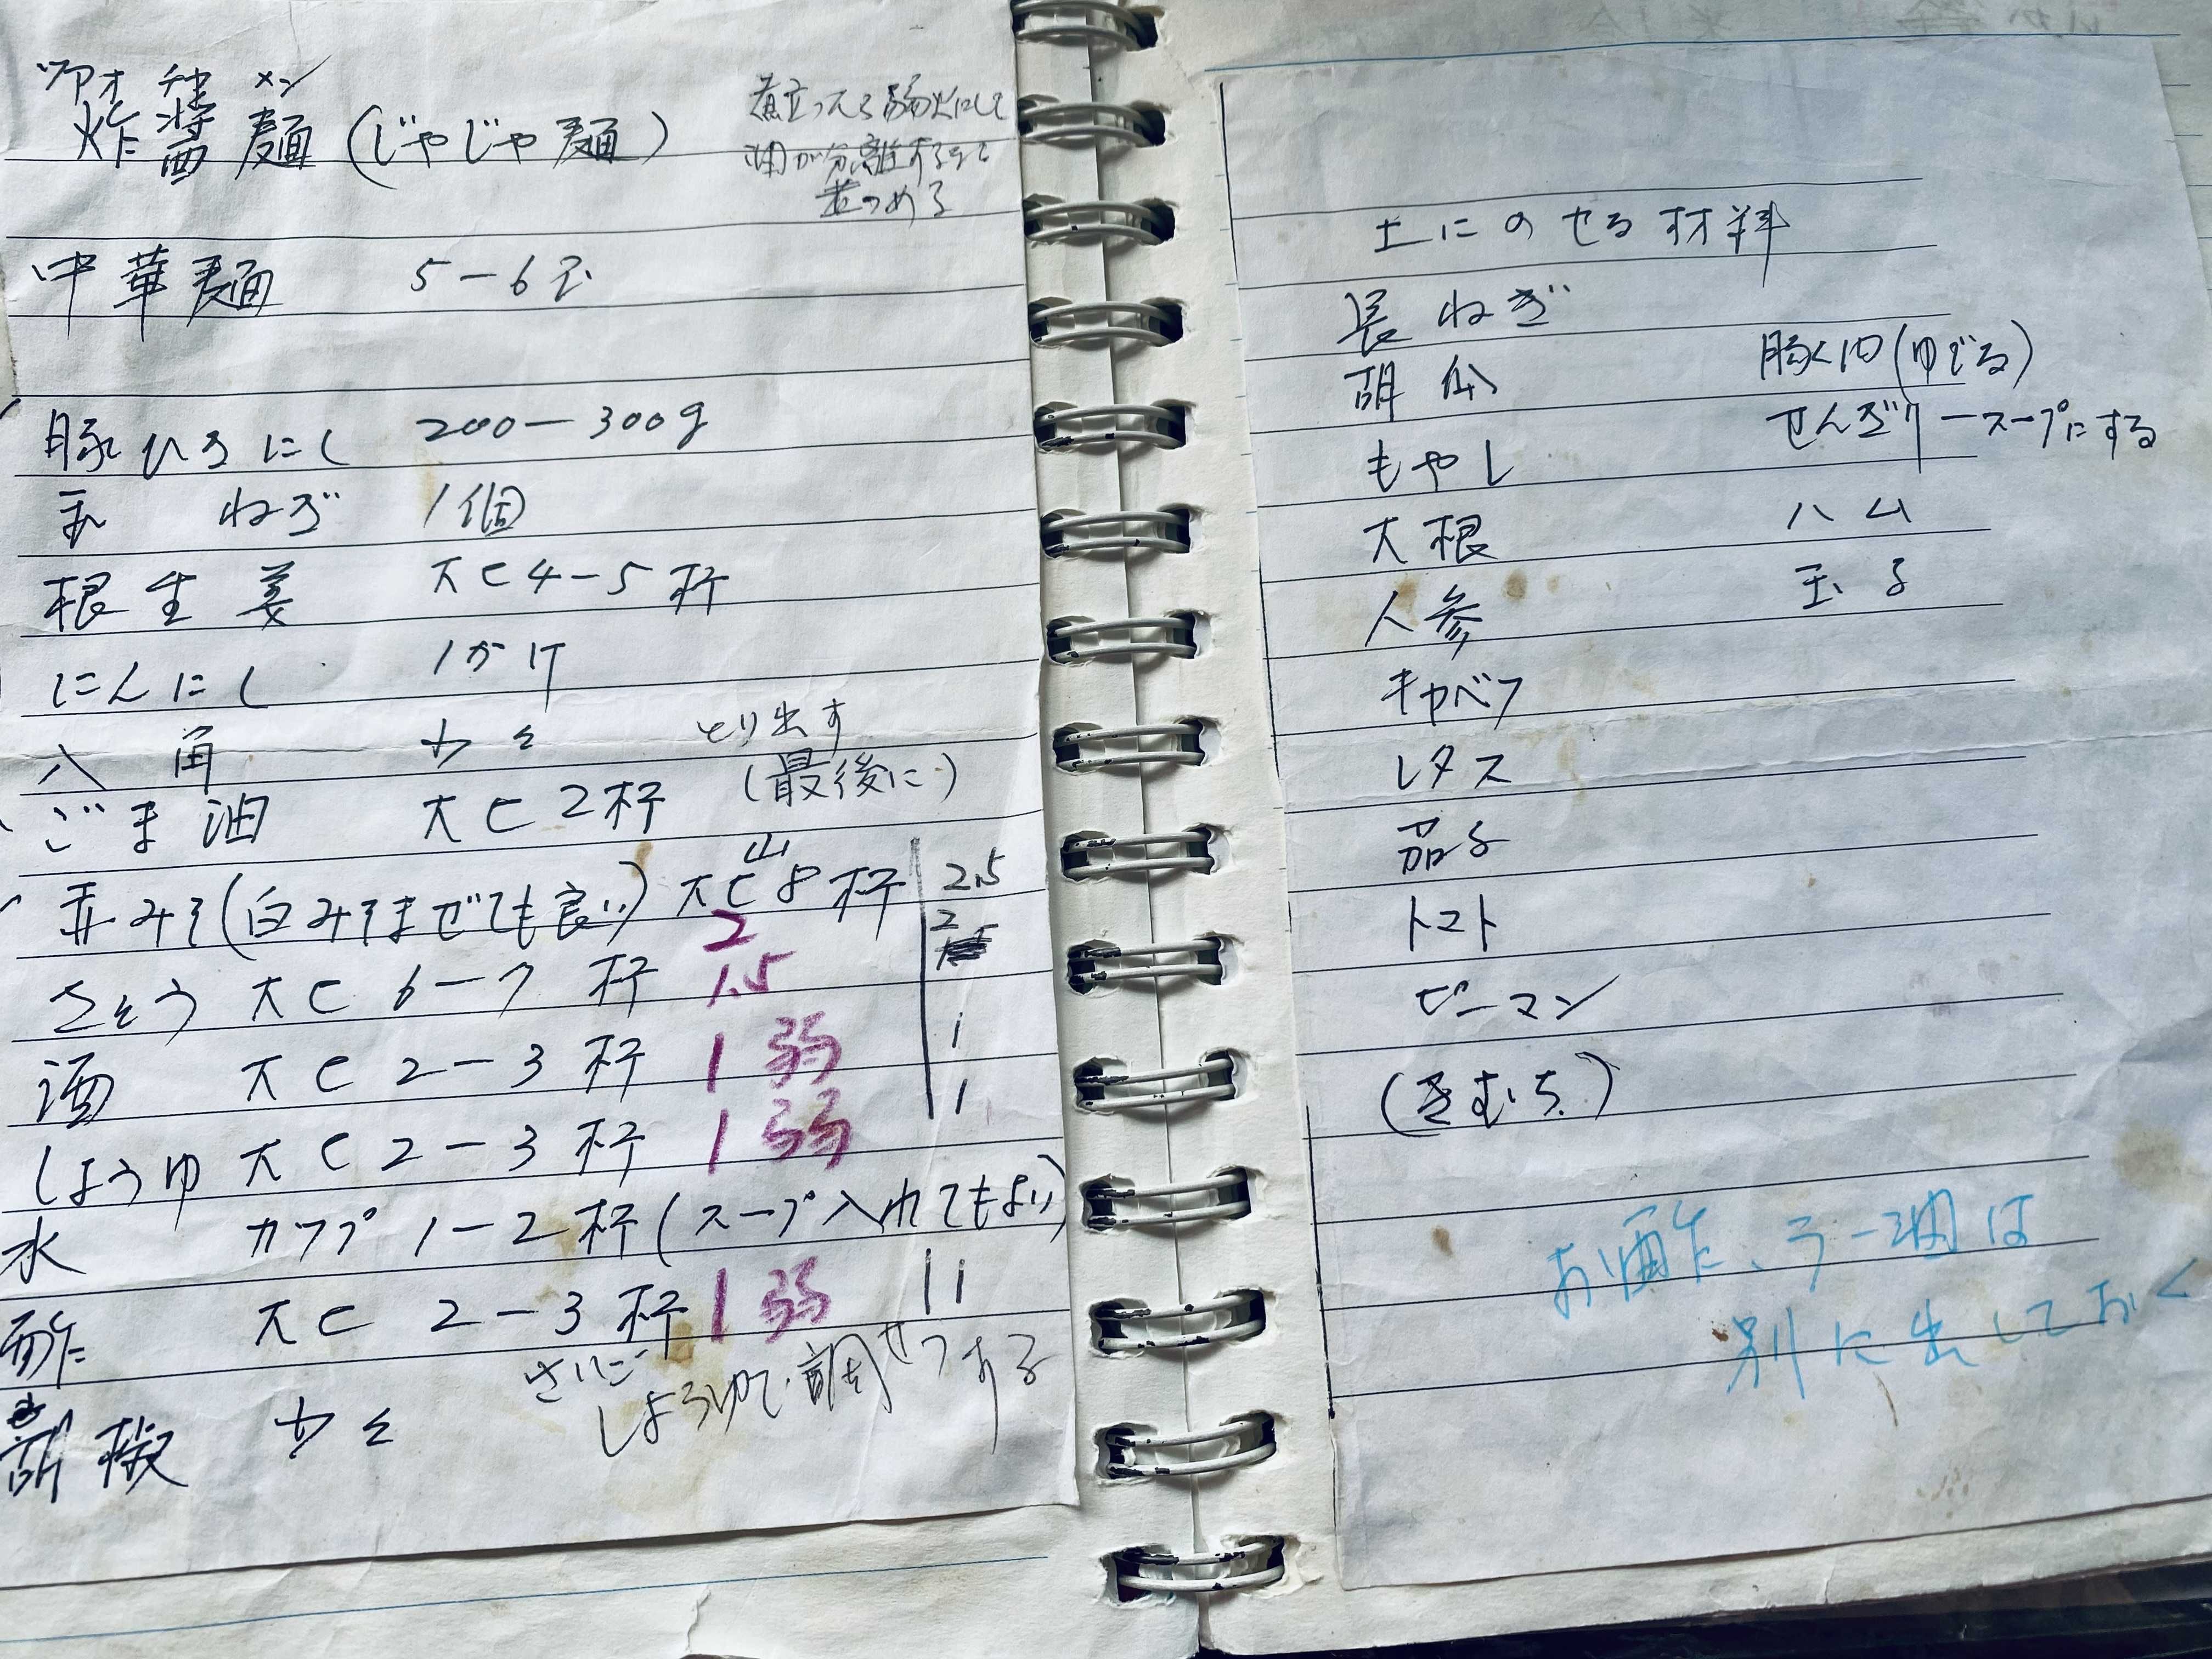 ツアオ チャン メン
炸醤麺(じゃじゃ麺)
煮立ったら弱火にして
油が分離するまで
煮つめる
中華麺 5-6玉
豚ひきにく 200-300g
玉ねぎ 1個
根生姜 大さじ4-5杯
にんにく 1かけ
八角 少々 とり出す
(最後に)
ごま油 大さじ2杯
赤みそ(白みそまぜても良い) 大さじ山8杯 2.5
2 2
さとう 大さじ 6-7杯 1.5
酒 大さじ 2-3杯 1弱 1
しょうゆ 大さじ 2-3杯 1弱 1
水 カップ 1-2杯(スープ入れてもよい)
酢 大さじ 2-3杯 1弱 1
胡椒 少々
さいごに
しょうゆで調せつする
上にのせる材料
長ねぎ
胡瓜 豚肉(ゆでる)
もやし せんぎりースープにする
大根 ハム
人参 玉子
キャベツ
レタス
茄子
トマト
ピーマン
(きむち)
お酢、ラー油は
別に出しておく